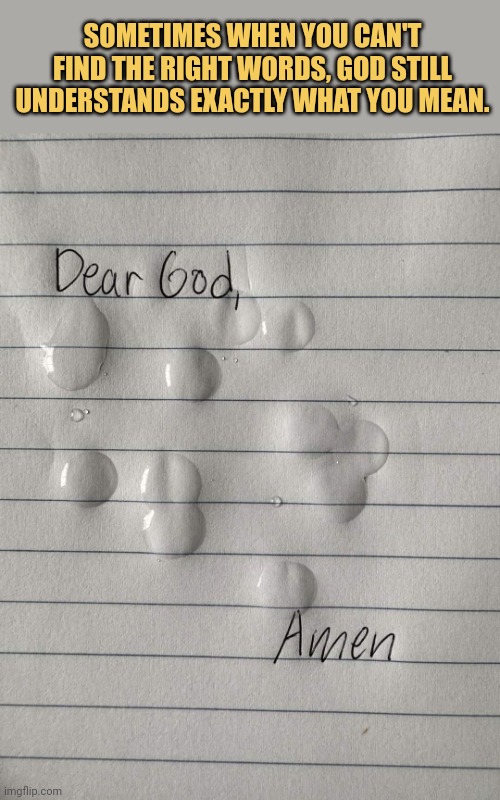 SOMETIMES WHEN YOU CAN'T
FIND THE RIGHT WORDS, GOD STILL
UNDERSTANDS EXACTLY WHAT YOU MEAN.
Dear God,
Amen
imgflip.com